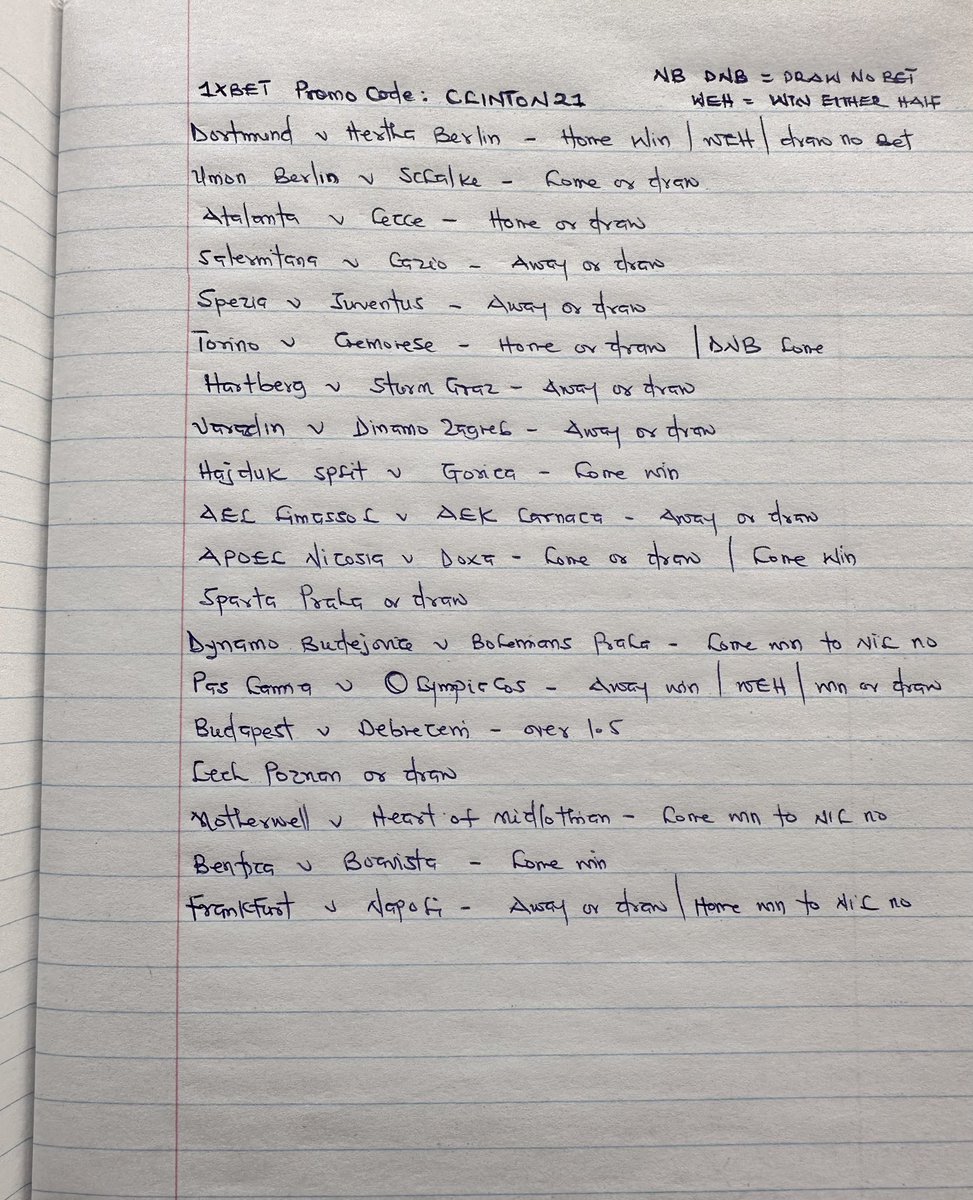 NB DNB = DRAW NO BET
1XBET Promo Code: CLINTON21
WEH = WIN EITHER HALF
Dortmund v Hertha Berlin - Home Win | WEH | draw no Bet
Union Berlin v Schalke - home or draw
Atalanta v Lecce - Home or draw
Salernitana v Lazio - Away or draw
Spezia v Juventus - Away or draw
Torino v Cremonese - Home or draw | DNB home
Hartberg v Sturm Graz - Away or draw
Varazdin v Dinamo Zagreb - Away or draw
Hajduk split v Gorica - home win
AEL Limassol v AEK Larnaca - Away or draw
APOEL Nicosia v Doxa - home or draw | home Win
Sparta Praha or draw
Dynamo Budejovice v Bohemians Praha - home win to NiL no
Pas Lamia v Olympiacos - Away win | WEH | win or draw
Budapest v Debreceni - over 1.5
Lech Poznan or draw
Motherwell v Heart of midlothian - home win to NiL no
Benfica v Boavista - home win
Frankfurt v Napoli - Away or draw | Home win to NiL no